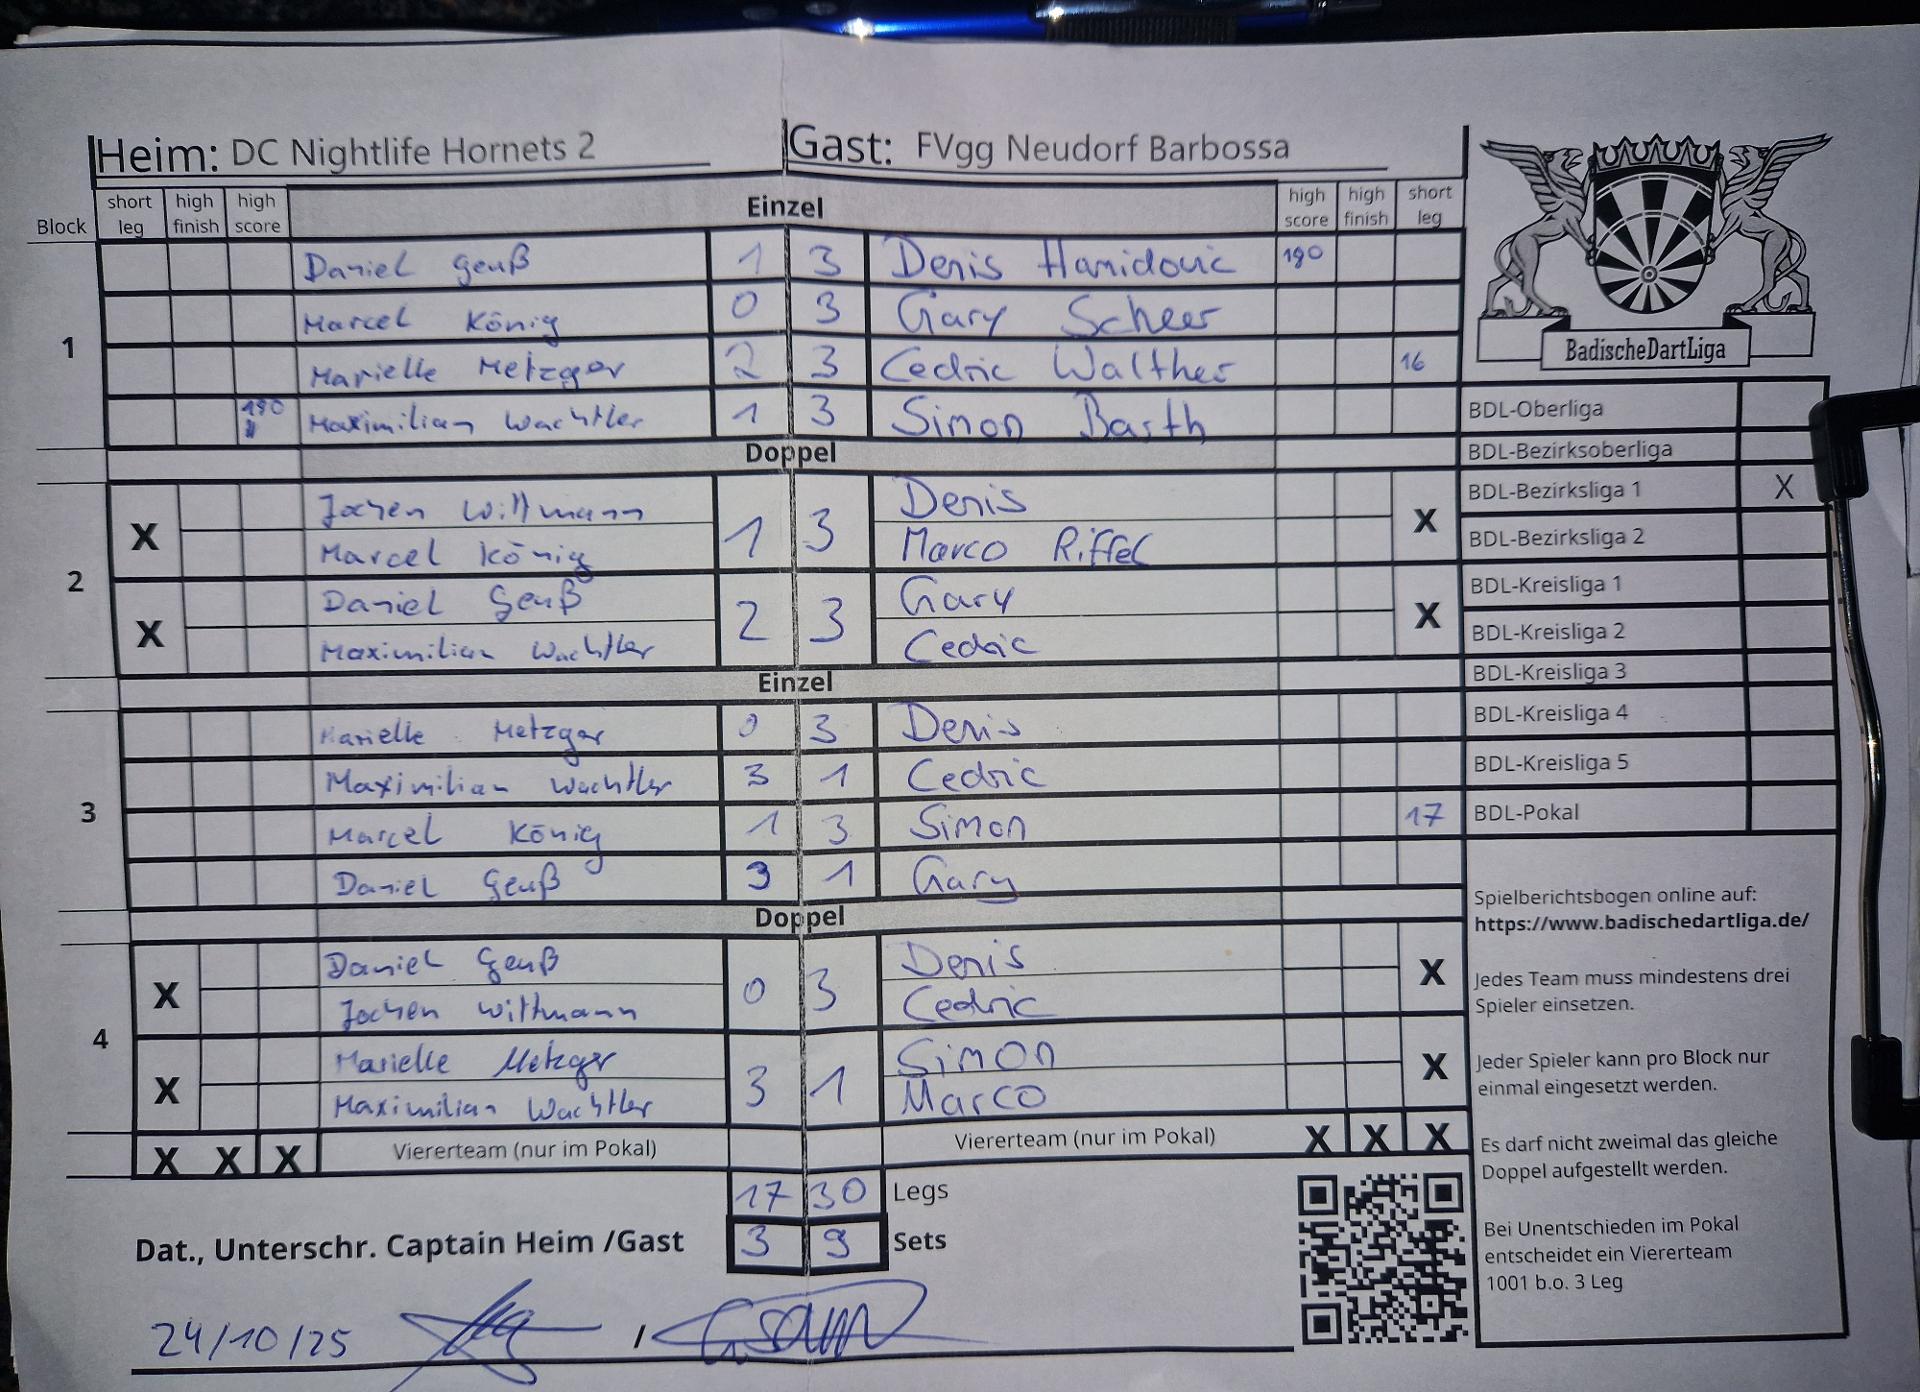 Heim: DC Nightlife Hornets 2 Gast: FVgg Neudorf Barbossa
Block short leg high finish high score Einzel high score high finish short leg
1
Daniel Geuß 1 3 Denis Hamidovic 180
Marcel König 0 3 Gary Scheer
Marielle Metzger 2 3 Cedric Walther 16
180 Maximilian Wachtler 1 3 Simon Barth
Doppel
2
X Jochen Wittmann 1 3 Denis X
Marcel König Marco Riffel
X Daniel Geuß 2 3 Gary X
Maximilian Wachtler Cedric
Einzel
3
Marielle Metzger 0 3 Denis
Maximilian Wachtler 3 1 Cedric
Marcel König 1 3 Simon 17
Daniel Geuß 3 1 Gary
Doppel
4
X Daniel Geuß 0 3 Denis X
Jochen Wittmann Cedric
X Marielle Metzger 3 1 Simon X
Maximilian Wachtler Marco
X X X Viererteam (nur im Pokal) Viererteam (nur im Pokal) X X X
17 30 Legs
Dat., Unterschr. Captain Heim /Gast 3 9 Sets
24/10/25 /
BadischeDartLiga
BDL-Oberliga
BDL-Bezirksoberliga
BDL-Bezirksliga 1 X
BDL-Bezirksliga 2
BDL-Kreisliga 1
BDL-Kreisliga 2
BDL-Kreisliga 3
BDL-Kreisliga 4
BDL-Kreisliga 5
BDL-Pokal
Spielberichtsbogen online auf:
https://www.badischedartliga.de/
Jedes Team muss mindestens drei
Spieler einsetzen.
Jeder Spieler kann pro Block nur
einmal eingesetzt werden.
Es darf nicht zweimal das gleiche
Doppel aufgestellt werden.
Bei Unentschieden im Pokal
entscheidet ein Viererteam
1001 b.o. 3 Leg